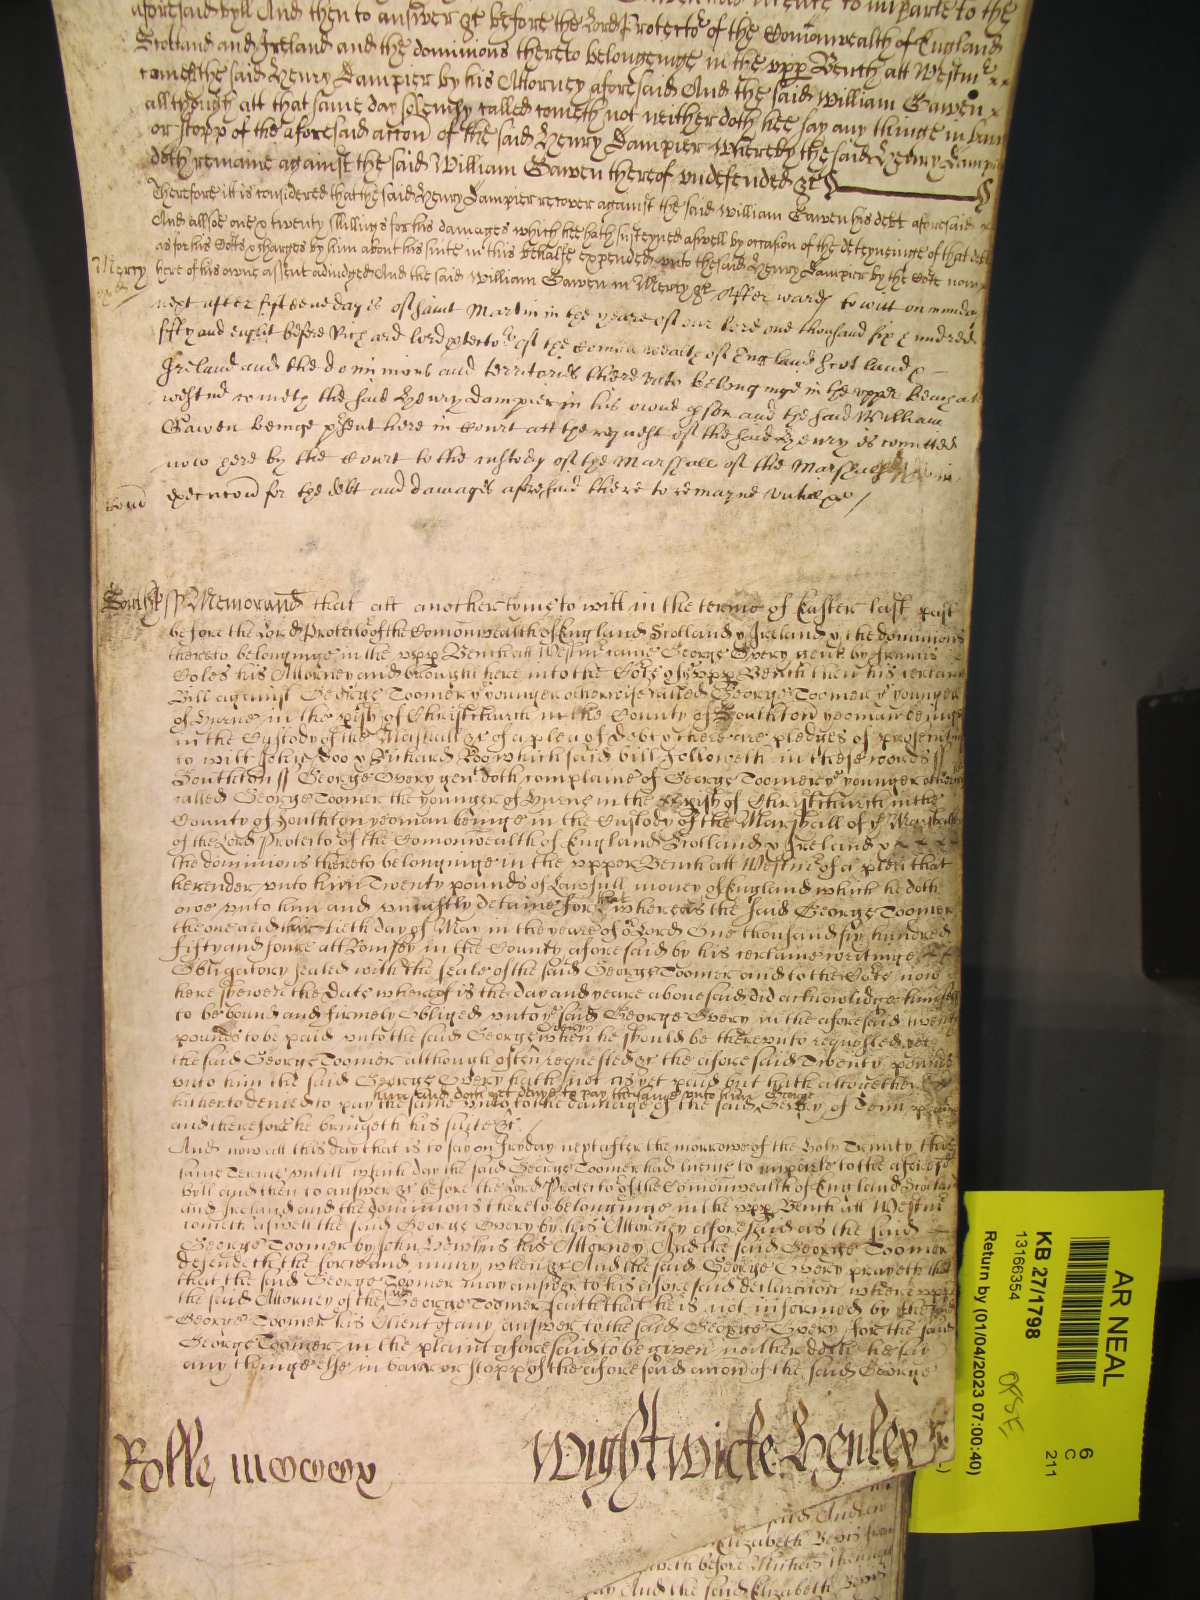 aforesaid byll And then to answer &c before the Lord Protector of the Comonwealth of England
Scotland and Ireland and the dominions thereto belonginge in the upp Bench att Westmr
cometh the said Henry Dampier by his Attorney aforesaid And the said William Gawen
allthough att that same day solemly called cometh not neither doth hee say any thinge in barr
or stopp of the aforesaid accon of the said Henry Dampier Whereby the said Henry Dampier
doth remaine against the said William Gawen thereof undefended &c
Therefore itt is considered that the said Henry Dampier recover against the said William Gawen his debt aforesaid
And allsoe one & twenty shillings for his damages which hee hath susteyned aswell by occasion of the deteyneinge of that debt
as for his Costs & charges by him about his suite in this behalfe expended unto the said Henry Dampier by the Cort now
Mercy
here of his owne assent adiudged And the said William Gawen in Mercy &c Afterwards to witt on munday
next after fifteene dayes of saint Martin in the yeare of our lord one thousand six hundred
fifty and eight before Richard lord protector of the Comonwealth of England Scotland &
Ireland and the dominions and territories thereunto belonginge in the upper Bench att
westmr cometh the said Henry Dampier in his owne pson and the said William
Gawen beinge psent here in Court att the request of the said Henry is comitted
now here by the Court to the custody of the Marshall of the Marshalsea in
execucon for the debt and damages aforesaid there to remayne untill &c
Southt ss Memorand that att another tyme to witt in the terme of Easter last past
before the Lord Protector of the Comonwealth of England Scotland & Ireland & the dominions
thereto belonginge in the upp Bench att Westmr came George Overy gent by Francis
Coles his Attorney and brought here into the Cort of ye upp Bench then his certaine
Bill against George Toomer ye younger otherwise called George Toomer ye younger
of Hurne in the pish of Christchurch in the County of Southton yeoman beinge
in the Custody of the Marshall &c of a plea of debt & there are pledges of prosecuting
to witt John Doo & Richard Roo which said bill followeth in these words ss
Southton ss George Overy gen doth complaine of George Toomer ye younger otherwise
called George Toomer the younger of Hurne in the parish of Christchurch in the
County of Southton yeoman beinge in the Custody of the Marshall of ye Marshalsey
of the Lord Protector of the Comonwealth of England Scotland & Ireland &
the dominions thereto belonginge in the upper Bench att Westmr of a plea that
he render unto him Twenty pounds of Lawfull money of England which he doth
owe unto him and uniustly detaine for that whereas the said George Toomer
the one and day of May in the yeare of or Lord One thousand six hundred
fifty and foure att Romsey in the County aforesaid by his certaine writinge
Obligatory sealed with the seale of the said George Toomer and to the Cort now
here shewen the Date whereof is the day and yeare abovesaid did acknowlidge himself
to be bound and firmely Obliged unto ye said George Overy in the aforesaid twenty
pounds to be paid unto the said George Overy when he should be thereunto requested yet
the said George Toomer although often requested &c the aforesaid Twenty pounds
unto him the said George Overy hath not as yet paid but hath altogether
him and doth yet denye to pay the same unto him George
hitherto denied to pay the same unto to the damage of the said Overy of Tenn pounds
and therefore he bringeth his suite &c
And now att this day that is to say on Fryday next after the morrowe of the Holy Trinity this
same Terme untill which day the said George Toomer had licence to imparle to the aforesd
byll and then to answer &c before the Lord Protector of the Comonwealth of England Scotland
and Ireland and the dominions thereto belonginge in the upp Bench att Westmr
cometh aswell the said George Overy by his Attorney aforesaid as the said
George Toomer by John Newlins his Attorney And the said George Toomer
defendeth the force and iniury when &c And the said George Overy prayeth that
that the said George Toomer may answer to his aforesaid declaracion whereupon
the said Attorney of the said George Toomer saith that he is not informed by the said
George Toomer his Client of any answer to the said George Overy for the said
George Toomer in the plaint aforesaid to be given neither doth he say
any thinge else in barr or stopp of the aforesaid accon of the said George
Rolle
Wightwicke Henley
said Andrew
Elizabeth
before
And the said Elizabeth
AR NEAL
KB 27/1798
13166354
Return by (01/04/2023 07:00:40)
6
C
211